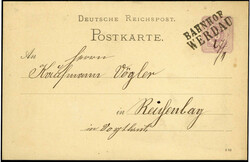 DEUTSCHE REICHSPOST.
POSTKARTE.
BAHNHOF
WERDAU
An Herrn
Kaufmann Vögler
in Reichenbach
in Vogtland